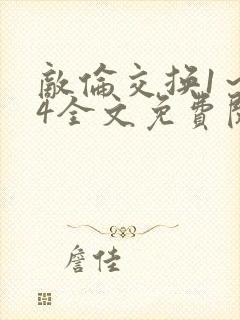 敵倫交换1~
4全文免費閱
詹佳